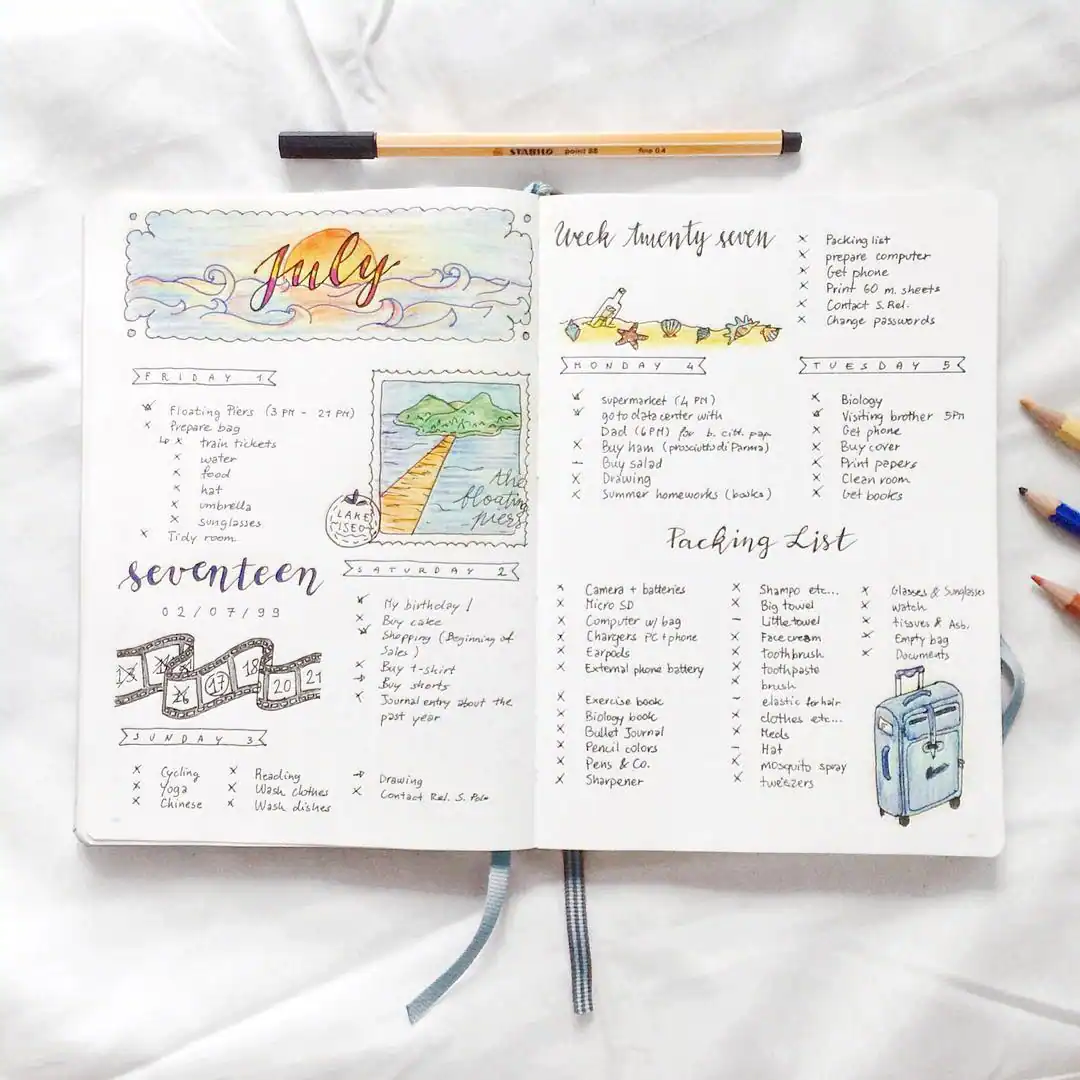 STABILO point 88 fine 0.4
July
FRIDAY 1
Floating Piers (3 PM - 21 PM)
Prepare bag
train tickets
water
food
hat
umbrella
sunglasses
Tidy room
the
floating
piers
LAKE
ISEO
seventeen
02/07/99
15
16
17
18
20
21
SATURDAY 2
My birthday!
Buy cake
Shopping (Beginning of
Sales)
Buy t-shirt
Buy shorts
Journal entry about the
past year
SUNDAY 3
Cycling
Yoga
Chinese
Reading
Wash clothes
Wash dishes
Drawing
Contact Rel. S.
Week twenty seven
Packing list
prepare computer
Get phone
Print 60 m. sheets
Contact S. Rel.
Change passwords
MONDAY 4
supermarket (4 PM)
go to data center with
Dad (6PM) for b. citt. pap.
Buy ham (prosciutto di Parma)
Buy salad
Drawing
Summer homeworks (books)
TUESDAY 5
Biology
Visiting brother 5PM
Get phone
Buy cover
Print papers
Clean room
Get books
Packing List
Camera + batteries
Micro SD
Computer w/ bag
Chargers PC + phone
Earpods
External phone battery
Exercise book
Biology book
Bullet Journal
Pencil colors
Pens & Co.
Sharpener
Shampo etc...
Big towel
Little towel
Face cream
toothbrush
toothpaste
brush
elastic for hair
clothes etc...
Meds
Hat
mosquito spray
tweezers
Glasses & Sunglasses
watch
tissues & Asb.
Empty bag
Documents